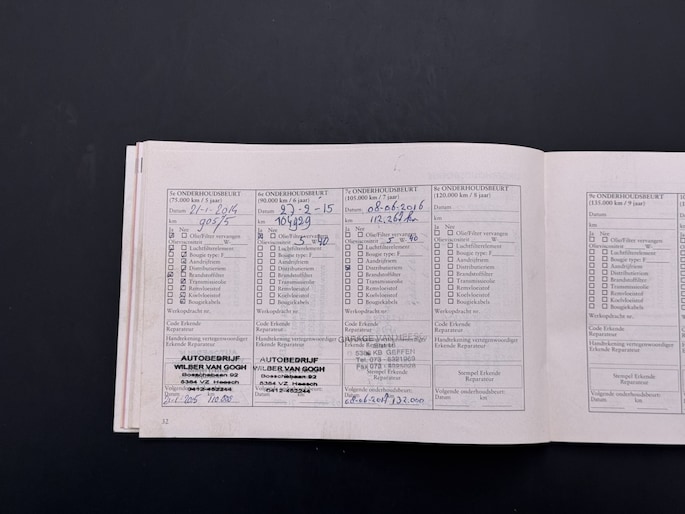 5e ONDERHOUDSBEURT
(75.000 km / 5 jaar)
Datum 21-1-2014
km 90515
Ja Nee
Olie/Filter vervangen
Olieviscositeit W-
Luchtfilterelement
Bougie type: F
Aandrijfriem
Distributieriem
Brandstoffilter
Transmissieolie
Remvloeistof
Koelvloeistof
Bougiekabels
Werkopdracht nr.
Code Erkende
Reparateur
Handtekening vertegenwoordiger
Erkende Reparateur
AUTOBEDRIJF
WILBER VAN GOGH
Bosschebaan 92
5384 VZ Heesch
0412-452244
Volgende
Datum km
110 000
6e ONDERHOUDSBEURT
(90.000 km / 6 jaar)
Datum 27-2-15
km 104929
Ja Nee
Olie/Filter vervangen
Olieviscositeit 5 W-40
Luchtfilterelement
Bougie type: F
Aandrijfriem
Distributieriem
Brandstoffilter
Transmissieolie
Remvloeistof
Koelvloeistof
Bougiekabels
Werkopdracht nr.
Code Erkende
Reparateur
Handtekening vertegenwoordiger
Erkende Reparateur
AUTOBEDRIJF
WILBER VAN GOGH
Bosschebaan 92
5384 VZ Heesch
0412-452244
Datum km
7e ONDERHOUDSBEURT
(105.000 km / 7 jaar)
Datum 08-06-2016
km 112.262 km
Ja Nee
Olie/Filter vervangen
Olieviscositeit 5 W-40
Luchtfilterelement
Bougie type: F
Aandrijfriem
Distributieriem
Brandstoffilter
Transmissieolie
Remvloeistof
Koelvloeistof
Bougiekabels
Werkopdracht nr.
Code Erkende
Reparateur
Handtekening vertegenwoordiger
Erkende Reparateur
GARAGE
GEFFEN
Tel. 073
Fax 073
Stempel Erkende
Reparateur
Volgende onderhoudsbeurt:
Datum km
08-06-2017 132.000
8e ONDERHOUDSBEURT
(120.000 km / 8 jaar)
Datum
km
Ja Nee
Olie/Filter vervangen
Olieviscositeit W-
Luchtfilterelement
Bougie type: F
Aandrijfriem
Distributieriem
Brandstoffilter
Transmissieolie
Remvloeistof
Koelvloeistof
Bougiekabels
Werkopdracht nr.
Code Erkende
Reparateur
Handtekening vertegenwoordiger
Erkende Reparateur
Stempel Erkende
Reparateur
Volgende onderhoudsbeurt:
Datum km
32
9e ONDERHOUDSBEURT
(135.000 km / 9 jaar)
Datum
km
Ja Nee
Olie/Filter vervangen
Olieviscositeit W-
Luchtfilterelement
Bougie type: F
Aandrijfriem
Distributieriem
Brandstoffilter
Transmissieolie
Remvloeistof
Koelvloeistof
Bougiekabels
Werkopdracht nr.
Code Erkende
Reparateur
Handtekening vertegenwoordiger
Erkende Reparateur
Stempel Erkende
Reparateur
Volgende onderhoudsbeurt:
Datum km